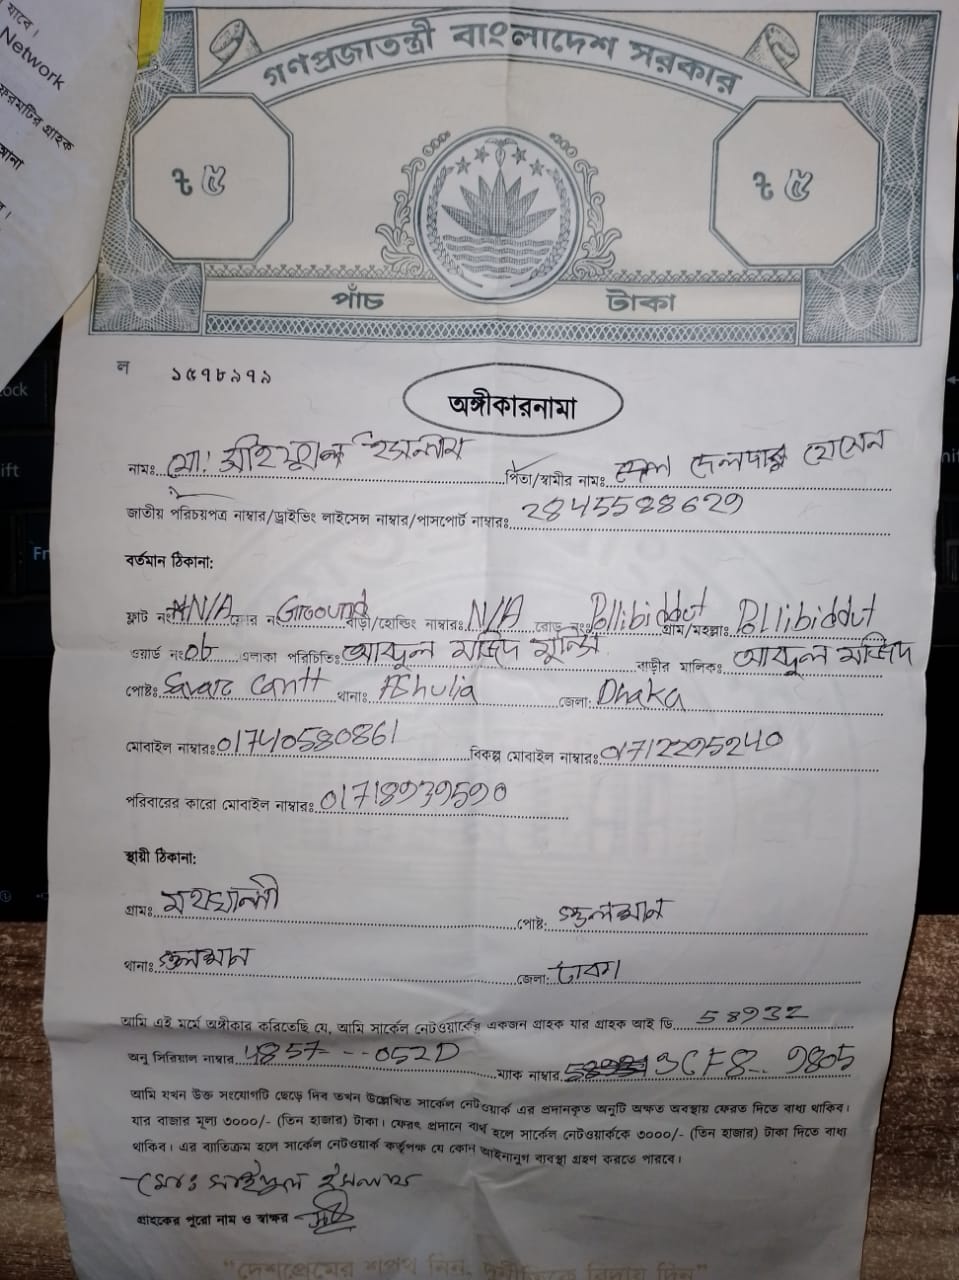 যাবে।
Network
ফরমটির গ্রাহক
গণপ্রজাতন্ত্রী বাংলাদেশ সরকার
৳ ৫ ৳ ৫
পাঁচ টাকা
ল ১৫৭৮৯৭৯
অঙ্গীকারনামা
নামঃ মো: সাইফুল ইসলাম পিতা/স্বামীর নামঃ হোসেন
জাতীয় পরিচয়পত্র নাম্বার/ড্রাইভিং লাইসেন্স নাম্বার/পাসপোর্ট নাম্বারঃ 2845588629
বর্তমান ঠিকানা:
ফ্লাট নং N/A ফ্লোর নং Ground বাড়ী/হোল্ডিং নাম্বারঃ N/A রোড নংঃ Pollibiddut গ্রাম/মহল্লাঃ Pollibiddut
ওয়ার্ড নংঃ 06 এলাকা পরিচিতিঃ আব্দুল মজিদ মুন্সি বাড়ীর মালিকঃ আব্দুল মজিদ
পোষ্টঃ Savar Cantt থানাঃ Ashulia জেলা: Dhaka
মোবাইল নাম্বারঃ 01740580861 বিকল্প মোবাইল নাম্বারঃ 01712295240
পরিবারের কারো মোবাইল নাম্বারঃ 01718939590
স্থায়ী ঠিকানা:
গ্রামঃ মহাখালী পোষ্ট: গুলশান
থানাঃ গুলশান জেলা: ঢাকা
আমি এই মর্মে অঙ্গীকার করিতেছি যে, আমি সার্কেল নেটওয়ার্কের একজন গ্রাহক যার গ্রাহক আই ডি 58932
অনু সিরিয়াল নাম্বার 4857---052D ম্যাক নাম্বার 3CF8.. 9805
আমি যখন উক্ত সংযোগটি ছেড়ে দিব তখন উল্লেখিত সার্কেল নেটওয়ার্ক এর প্রদানকৃত অনুটি অক্ষত অবস্থায় ফেরত দিতে বাধ্য থাকিব।
যার বাজার মূল্য ৩০০০/- (তিন হাজার) টাকা। ফেরৎ প্রদানে ব্যর্থ হলে সার্কেল নেটওয়ার্ককে ৩০০০/- (তিন হাজার) টাকা দিতে বাধ্য
থাকিব। এর ব্যতিক্রম হলে সার্কেল নেটওয়ার্ক কর্তৃপক্ষ যে কোন আইনানুগ ব্যবস্থা গ্রহণ করতে পারবে।
মোঃ সাইফুল ইসলাম
গ্রাহকের পুরো নাম ও স্বাক্ষর
"দেশপ্রেমের শপথ নিন, দুর্নীতিকে বিদায় দিন"